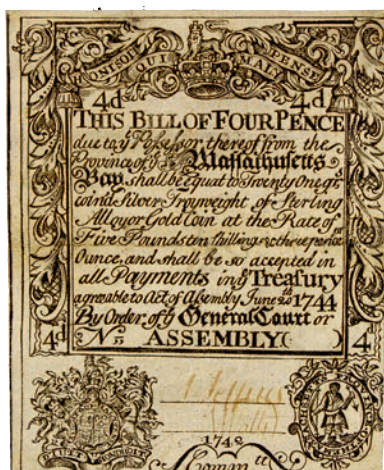 HONI SOIT QUI MAL Y PENSE
4d 4d
THIS BILL OF FOUR PENCE
due to yͤ Possessor thereof from the
Province of yͤ Massachusetts
Bay shall be equal to Twenty One gr
Silver Troyweight of Sterling
Alloy or Gold Coin at the Rate of
Five Pounds ten Shillings & three pence
Ounce, and shall be so accepted in
all Payments in yͤ Treasury
agreeable to Act of Assembly June 20th 1744
By Order of yͤ General Court or
4d N ASSEMBLY( ) 4
DIEU ET MON DROIT
1742
Committee